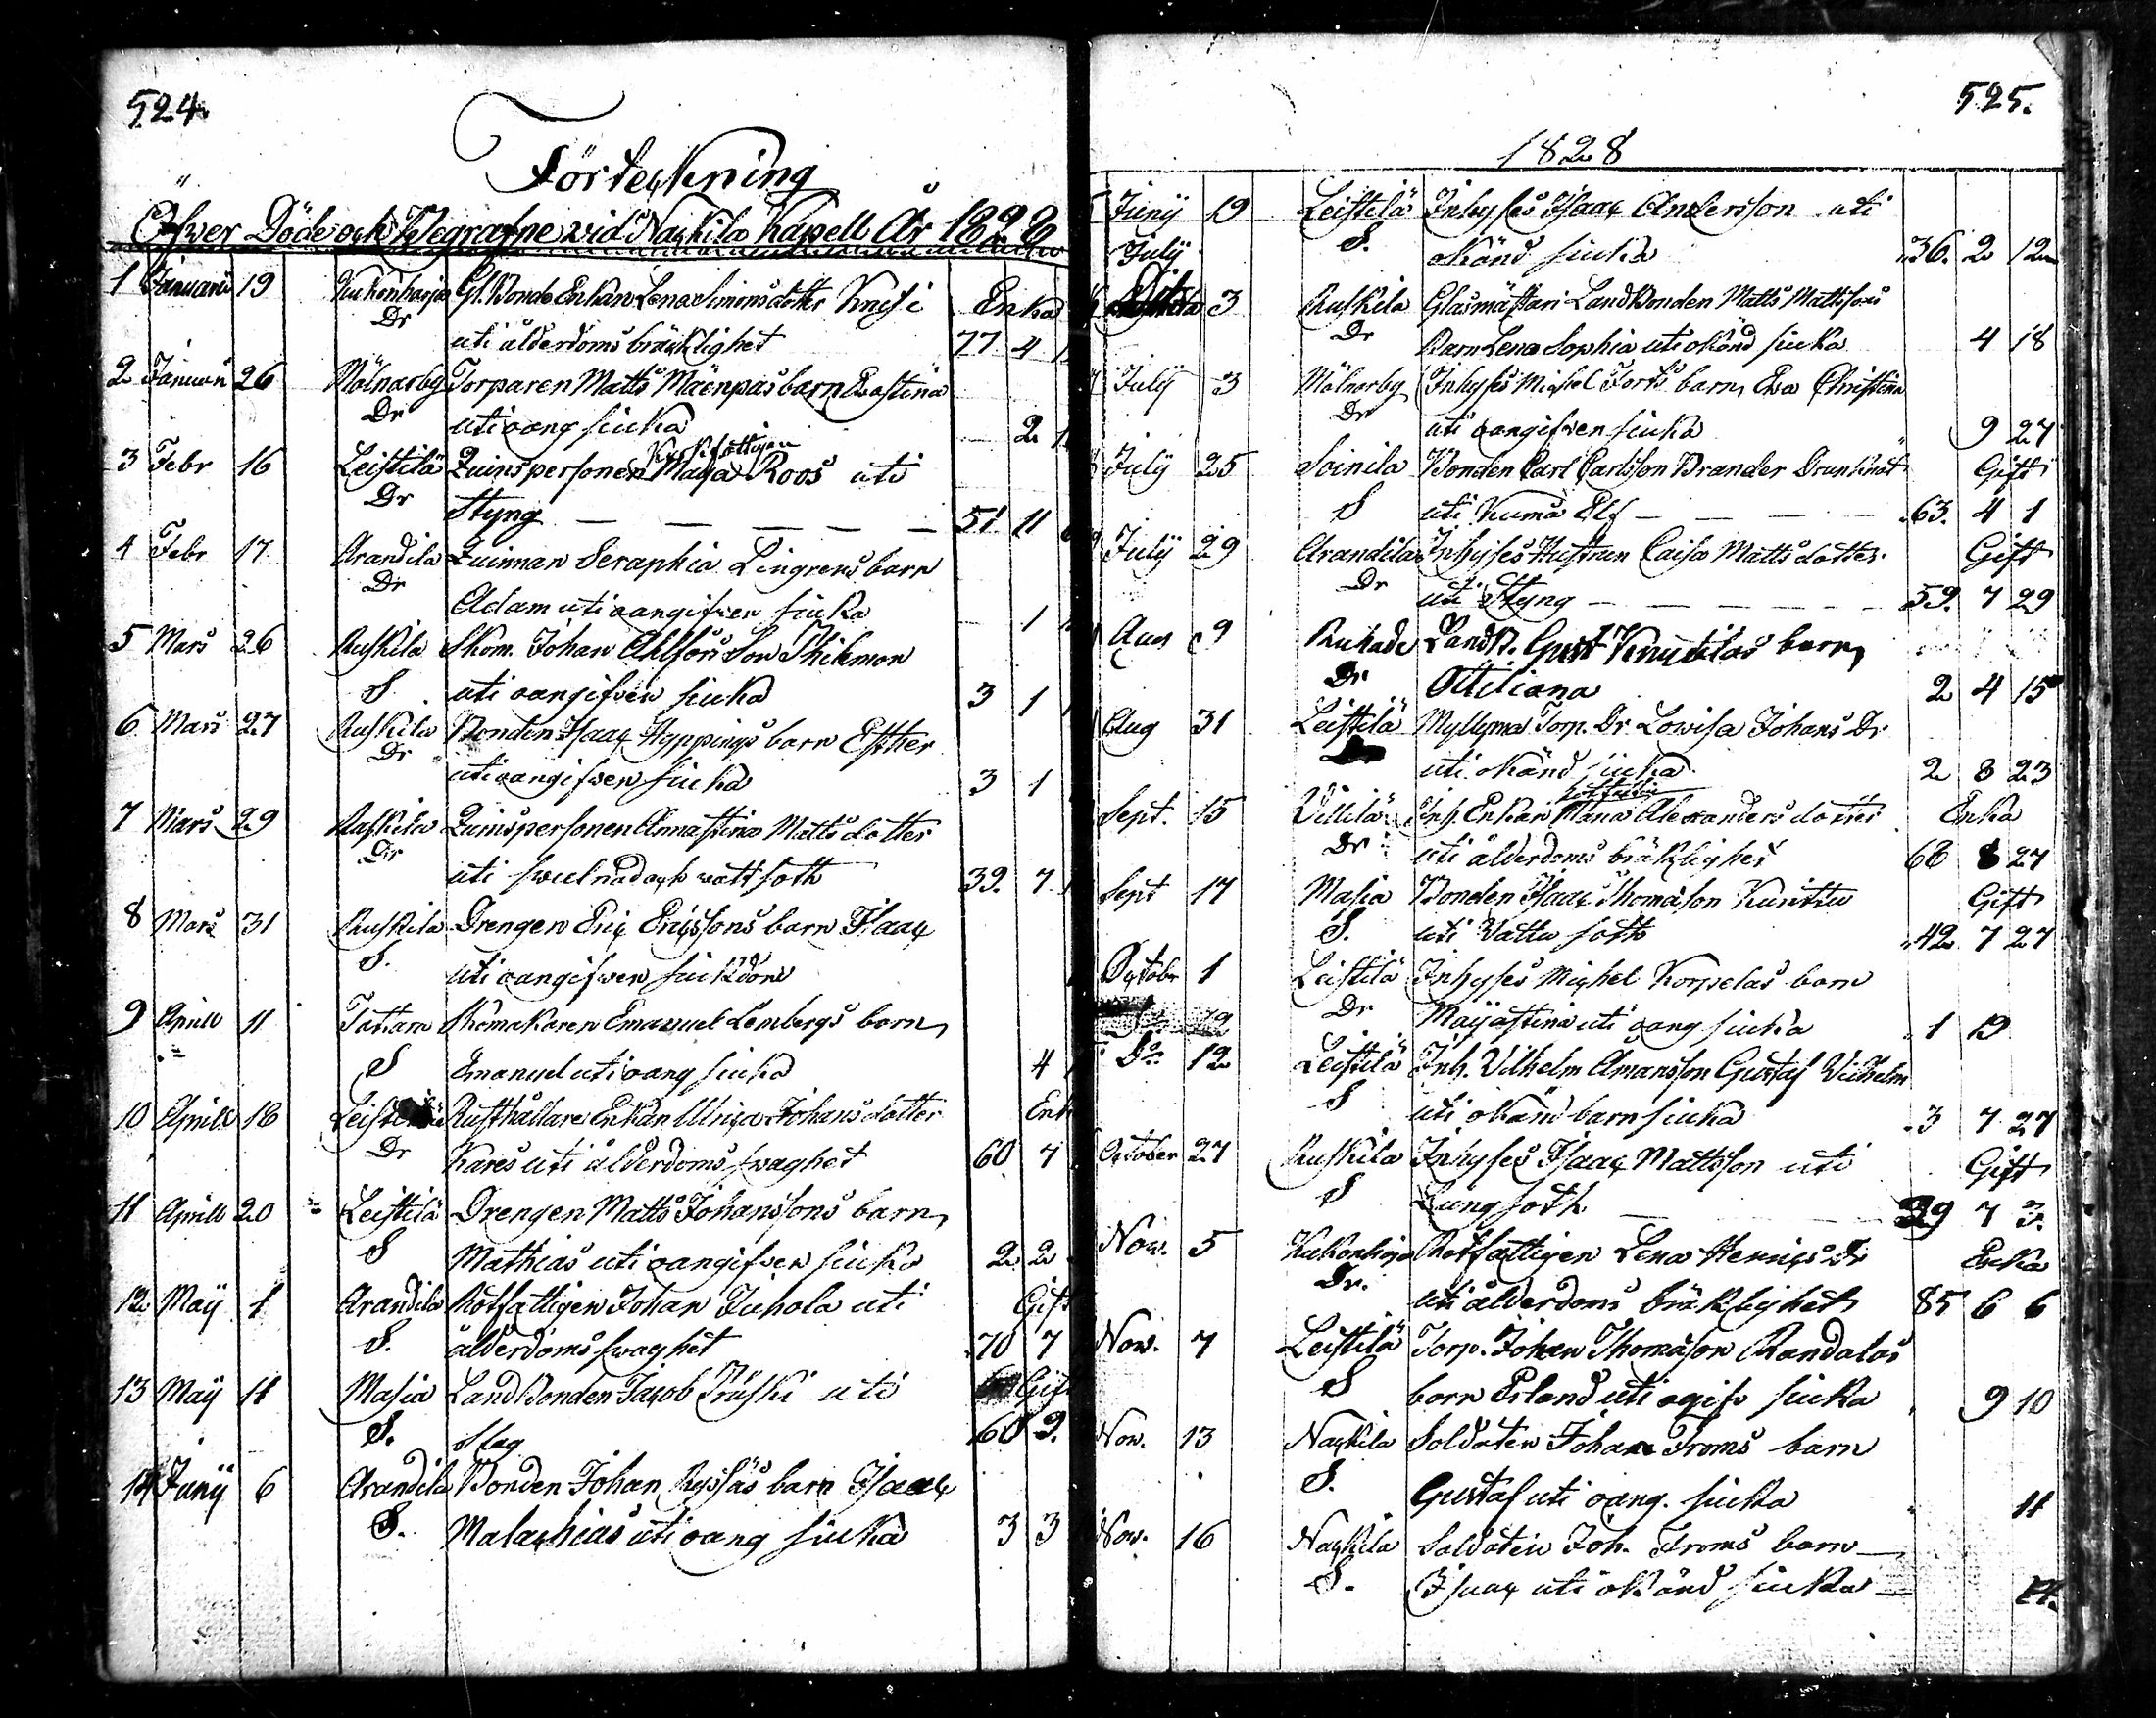 524.
Förteckning
Öfwer Döde och Begrafne wid Nackila Kapell År 1828
1 Januarii 19 Kukonharja Gl. Bonde Enkan Lena Simonsdotter Knifi Enka
Dr uti ålderdoms bräcklighet 77 4
2 Januarii 26 Mölnarby Torparen Matts Mäenpäs barn Evastina
Dr uti oang siuka 2
3 Febr 16 Leistilä Quinspersonen Maja Roos uti
Dr Styng — — — — — 51 11
4 Febr 17 Arandila Quinnan Seraphia Lingrens barn
Dr Adam uti oangifwen siuka 1
5 Mars 26 Ruskila Skom. Johan Ahlfors Son
S. uti oangifwen siuka 3 1
6 Mars 27 Ruskila Bonden Isaac Hyppings barn Esther
Dr uti oangifwen siuka 3 1
7 Mars 29 Ruskila Quinspersonen Annastina Matts dotter
Dr uti swulnad och watt soth 39. 7
8 Mars 31 Ruskila Drengen Eric Ericssons barn Isaac
S. uti oangifwen siukdom
9 Aprill 11 Tattara Skomakaren Emanuel Lembergs barn
S Emanuel uti oang siuka 4
10 Aprill 18 Leistilä Rusthållare Enkan Ulrica Johans dotter Enk
Dr Kares uti ålderdoms swaghet 60 7
11 Aprill 20 Leistilä Drengen Matts Johanssons barn
S Mathias uti oangifwen siuka 2 2
12 Maij 1 Arandila Rotfattigen Johan Juhola uti Gift
S. ålderdoms swaghet 70 7
13 Maij 11 Masia LandBonden Jacob Träski uti Gift
S. Slag 60 9.
14 Junij 6 Arandila Bonden Johan Ryssäs barn Isaac
S. Malachias uti oang siuka 3 3
525.
1828
Junij 19 Leistilä Inhyses Isaac Andersson uti
July S. okänd siuka 36. 2 12
3 Ruskila Glasmästari LandBonden Matts Mattssons
Dr Barn Lena Sophia uti okänd siuka 4 18
July 3 Mölnarby Inhyses Michel Forss barn Eva Christina
Dr uti oangifven siuka 9 27
July 25 Soinila Bonden Carl Carlsson Brander Drunknat Gift
S uti Kumå Elf — — — — 63. 4 1
July 29 Arandila Inhyses Hustrun Caisa Matts dotter Gift
Dr uti Styng — — — — 59. 7 29
Aug 9 LandB. Gust Knuutilas barn
Dr Ottiliana 2 4 15
Aug 31 Leistilä Myllymaa Torp. Dr Lovisa Johans Dr
uti okänd siuka 2 8 23
Sept. 15 Villilä Inh. Enkan Maria Alexanders dotter Enka
Dr uti ålderdoms bräklighet 68 8 27
Sept 17 Masia Bonden Isaac Thomasson Kunttu Gift
S. uti Vattu soth 42 7 27
October 1 Leistilä Inhyses Michel Korpelas barn
Dr Maijastina uti oang siuka 1 19
Do 12 Leistilä Inh. Vilhelm Amansson Gustaf Vilhelm
S uti okänd barn siuka 3 7 27
October 27 Ruskila Inhyses Isaac Mattsson uti Gift
S Lungsoth 39 7 3.
Nov. 5 Kukonharja Rotfattigen Lena Henrics Dr Enka
Dr. uti ålderdoms bräklighet 85 6 6
Nov. 7 Leistilä Torp. Johan Thomasson Randalas
S barn Erland uti ogif siuka 9 10
Nov. 13 Nackila Soldaten Johan Froms barn
S. Gustaf uti oang. siuka 11
Nov. 16 Nackila Soldaten Joh. Froms barn —
S. Isaac uti okänd siuka —